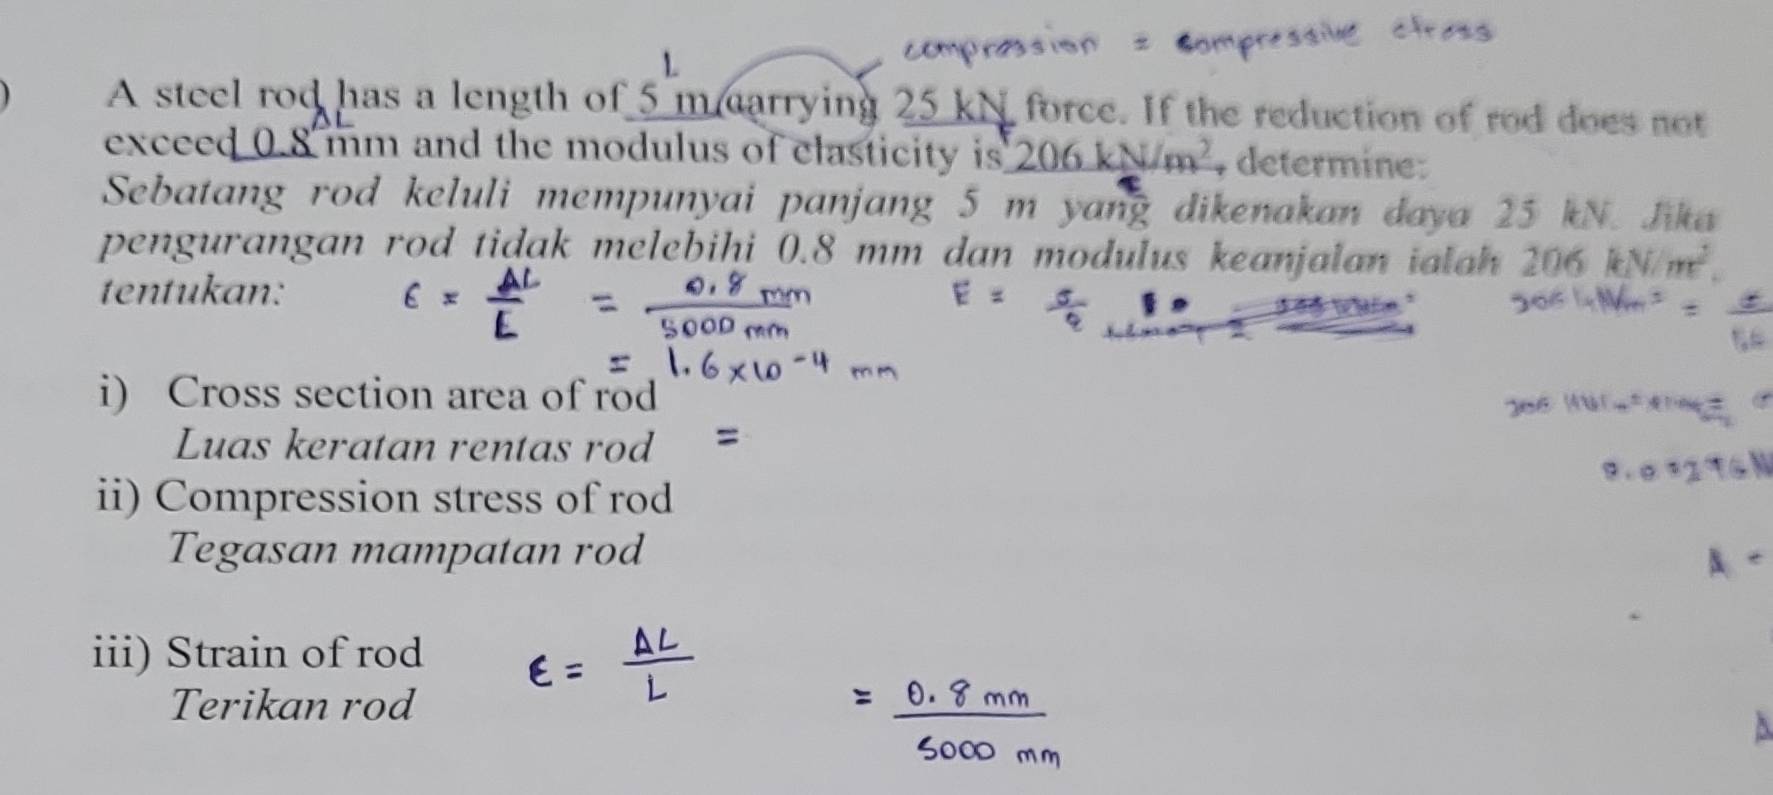 compression = compressive stress
L
A steel rod has a length of 5 m carrying 25 kN force. If the reduction of rod does not
ΔL
exceed 0.8 mm and the modulus of elasticity is 206 kN/m², determine:
Sebatang rod keluli mempunyai panjang 5 m yang dikenakan daya 25 kN. Jika
pengurangan rod tidak melebihi 0.8 mm dan modulus keanjalan ialah 206 kN/m²,
tentukan:
ε = ΔL/L = 0.8 mm/5000 mm
E = σ/ε
= 1.6 x 10⁻⁴ mm
i) Cross section area of rod
Luas keratan rentas rod =
ii) Compression stress of rod
Tegasan mampatan rod
A =
iii) Strain of rod
ε = ΔL/L
Terikan rod
= 0.8 mm/5000 mm
A